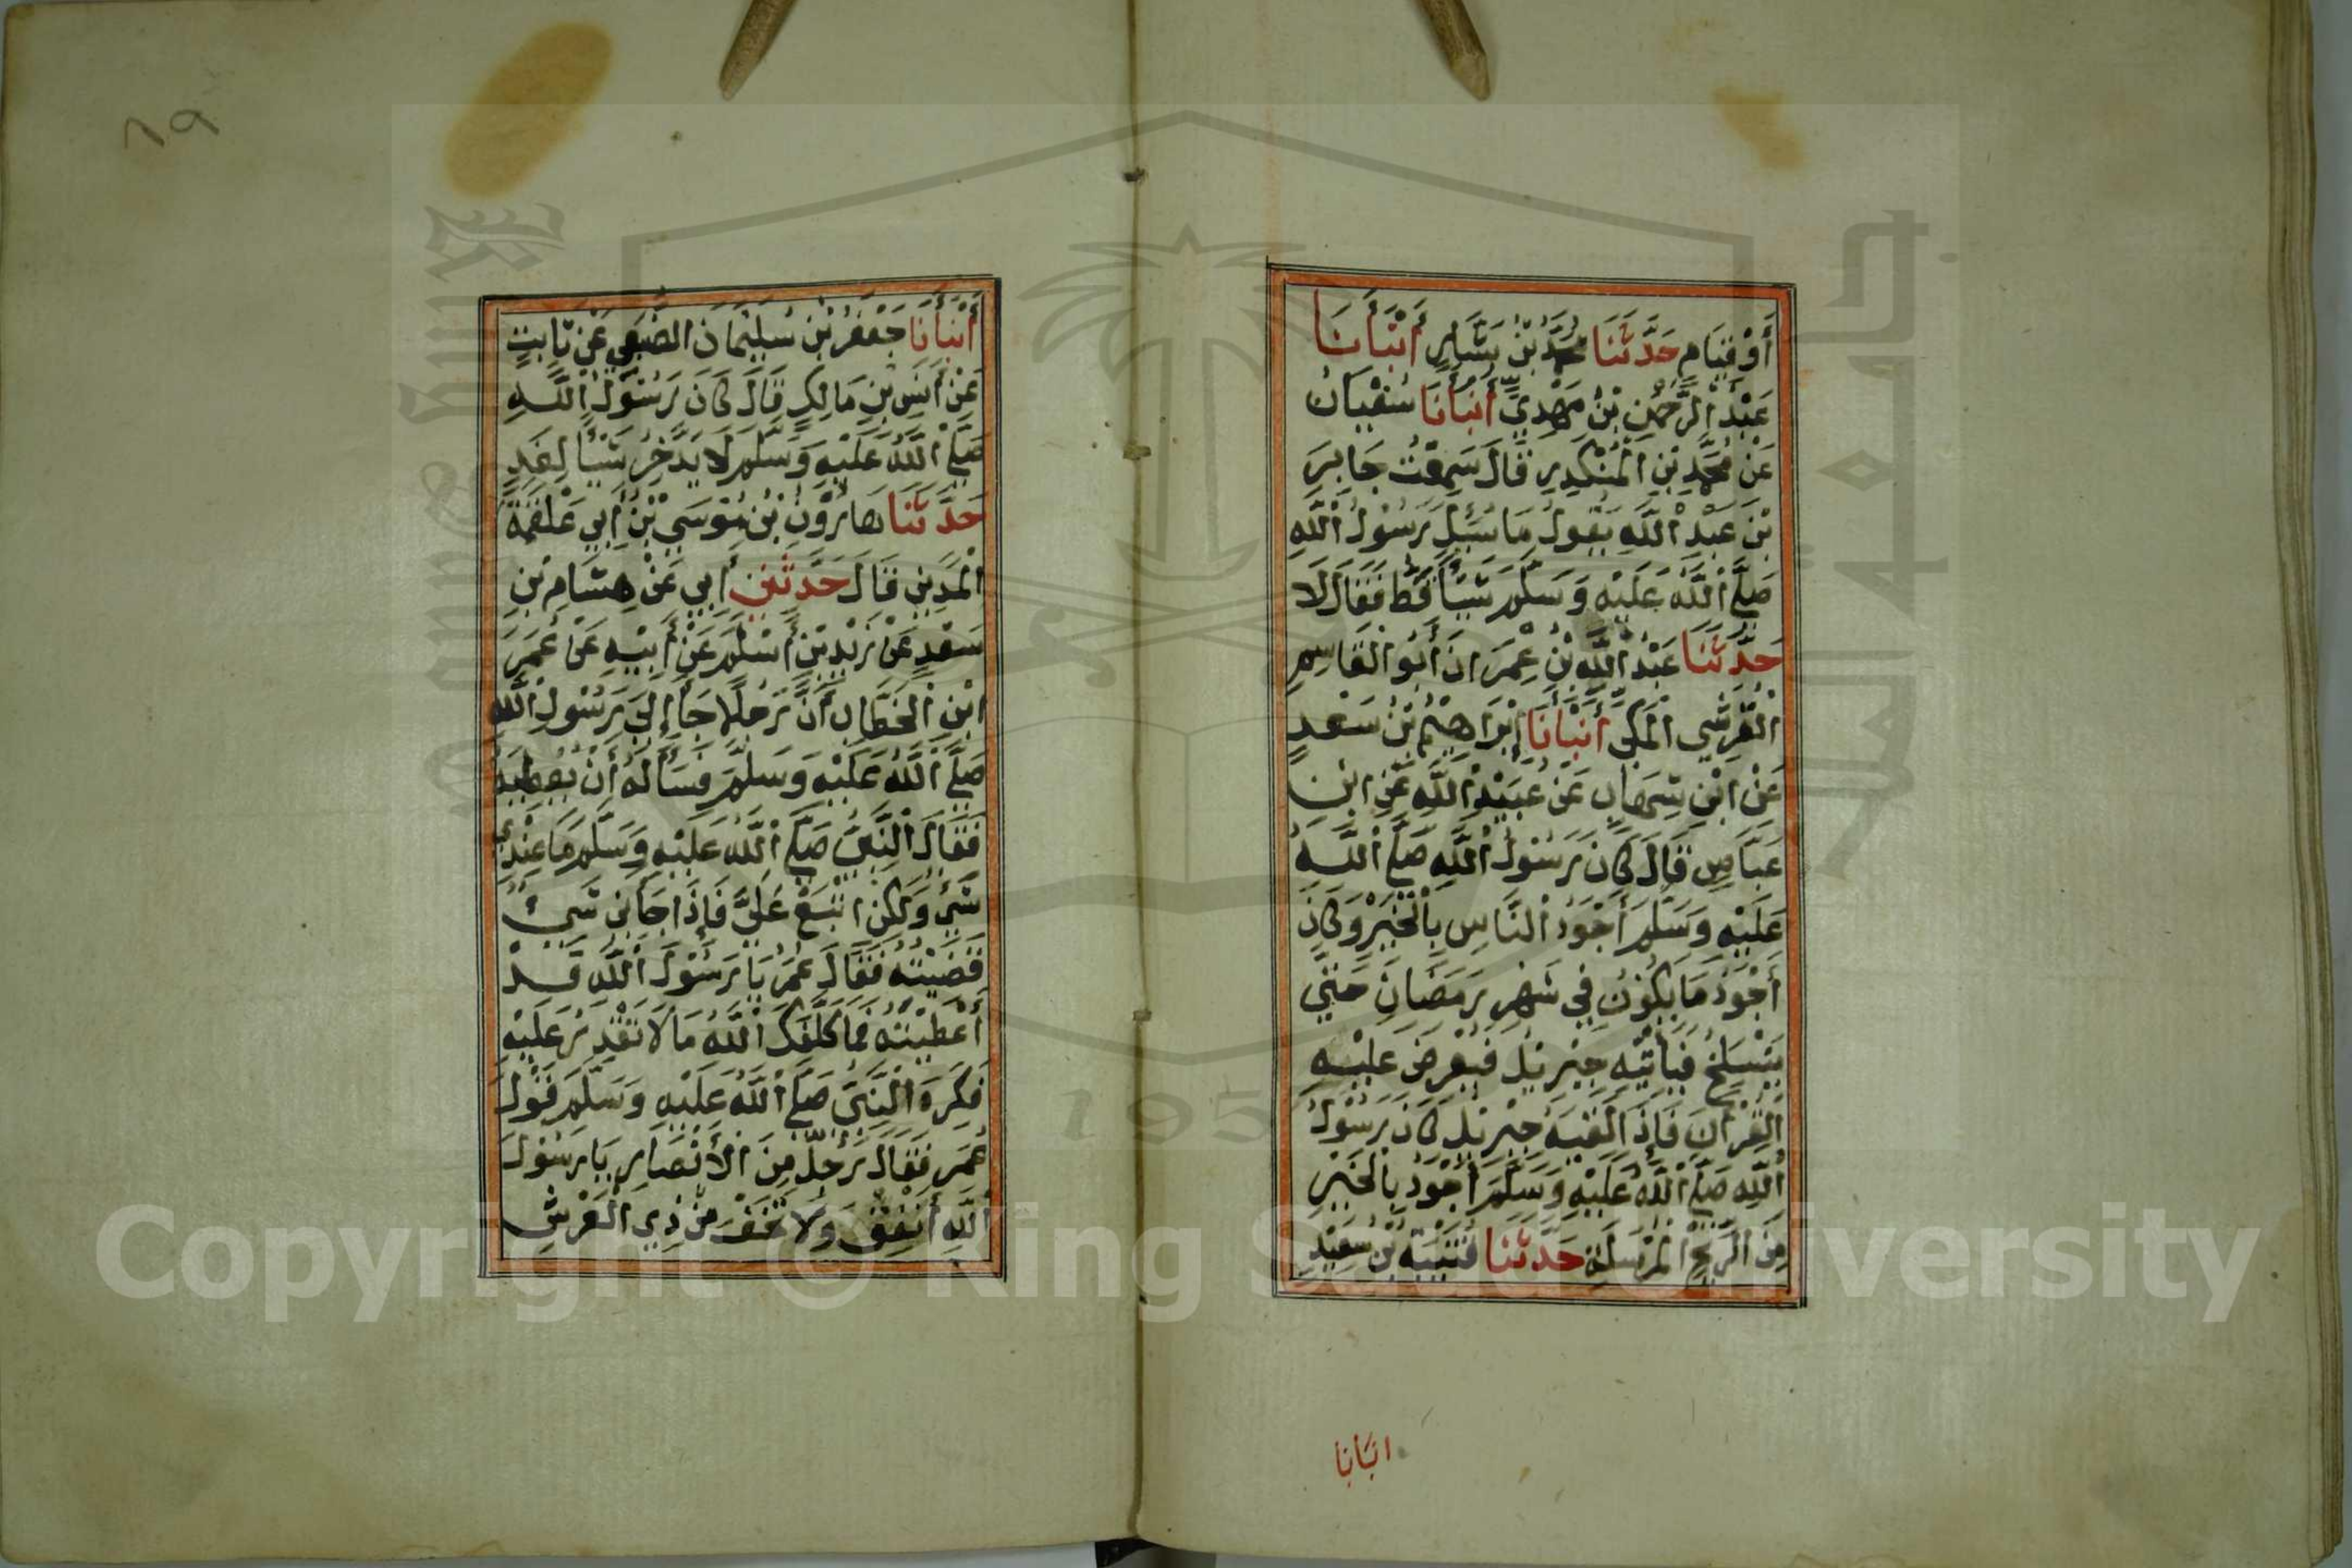 أَوْ قِيَامٍ حَدَّثَنَا مُحَمَّدُ بْنُ بَشَّارٍ أَنْبَأَنَا
عَبْدُ الرَّحْمٰنِ بْنُ مَهْدِيٍّ أَنْبَأَنَا سُفْيَانُ
عَنْ مُحَمَّدِ بْنِ الْمُنْكَدِرِ قَالَ سَمِعْتُ جَابِرَ
بْنَ عَبْدِ اللَّهِ يَقُولُ مَا سُئِلَ رَسُولُ اللَّهِ
صَلَّى اللَّهُ عَلَيْهِ وَسَلَّمَ شَيْأً قَطُّ فَقَالَ لَا
حَدَّثَنَا عَبْدُ اللَّهِ بْنُ عِمْرَانَ أَبُو الْقَاسِمِ
الْقُرَشِي الْمَكِّي أَنْبَأَنَا إِبْرَاهِيمُ بْنُ سَعْدٍ
عَنْ ابْنِ شِهَابٍ عَنْ عُبَيْدِ اللَّهِ عَنِ ابْنِ
عَبَّاسٍ قَالَ كَانَ رَسُولُ اللَّهِ صَلَّى اللَّهُ
عَلَيْهِ وَسَلَّمَ أَجْوَدُ النَّاسِ بِالْخَيْرِ وَكَانَ
أَجْوَدَ مَا يَكُونُ فِي شَهْرِ رَمَضَانَ حَتَّي
يَنْسَلِخَ فَيَأْتِيهِ جِبْرِيلُ فَيَعْرِضُ عَلَيْهِ
الْقُرْآنَ فَإِذَا لَقِيَهُ جِبْرِيلُ كَانَ رَسُولُ
اللَّهِ صَلَّى اللَّهُ عَلَيْهِ وَسَلَّمَ أَجْوَدُ بِالْخَيْرِ
مِنَ الرِّيحِ الْمُرْسَلَةِ حَدَّثَنَا قُتَيْبَةُ بْنُ سَعِيْدٍ
انبانا
٦٩
أَنْبَأَنَا جَعْفَرُ بْنُ سُلَيْمَانَ الضَّبَعِي عَنْ ثَابِتٍ
عَنْ أَنَسِ بْنِ مَالِكٍ قَالَ كَانَ رَسُولُ اللَّهِ
صَلَّى اللَّهُ عَلَيْهِ وَسَلَّمَ لَا يَدَّخِرُ شَيْأً لِغَدٍ
حَدَّثَنَا هَارُوْنُ بْنُ مُوْسَي بْنُ أَبِي عَلْقَمَةَ
الْمَدِيني قَالَ حَدَّثَنِي أَبِي عَنْ هِشَامِ بْنِ
سَعْدٍ عَنْ زَيْدِ بْنِ أَسْلَمَ عَنْ أَبِيْهِ عَنْ عُمَرَ
ابْنِ الْخَطَّابِ أَنَّ رَجُلًا جَاءَ إِلَي رَسُوْلِ اللَّهِ
صَلَّى اللَّهُ عَلَيْهِ وَسَلَّمَ فَسَأَلَهُ أَنْ يُعْطِيَهُ
فَقَالَ النَّبِيُّ صَلَّى اللَّهُ عَلَيْهِ وَسَلَّمَ مَا عِنْدِي
شَيْء وَلَكِنْ ابْتَعْ عَلَيَّ فَإِذَا جَاءَنِي شَيْءٌ
قَضَيْتُهُ فَقَالَ عُمَرُ يَا رَسُوْلَ اللَّهِ قَدْ
أَعْطَيْتَهُ فَمَا كَلَّفَكَ اللَّهُ مَا لَا تَقْدِرُ عَلَيْهِ
فَكَرِهَ النَّبِيُّ صَلَّى اللَّهُ عَلَيْهِ وَسَلَّمَ قَوْلَ
عُمَر فَقَالَ رَجُلٌ مِنَ الْأَنْصَارِ يَا رَسُوْلَ
اللَّهِ أَنْفِقْ وَلَا تَخَفْ مِنْ ذِي الْعَرْشِ
Copyright © King Saud University
195